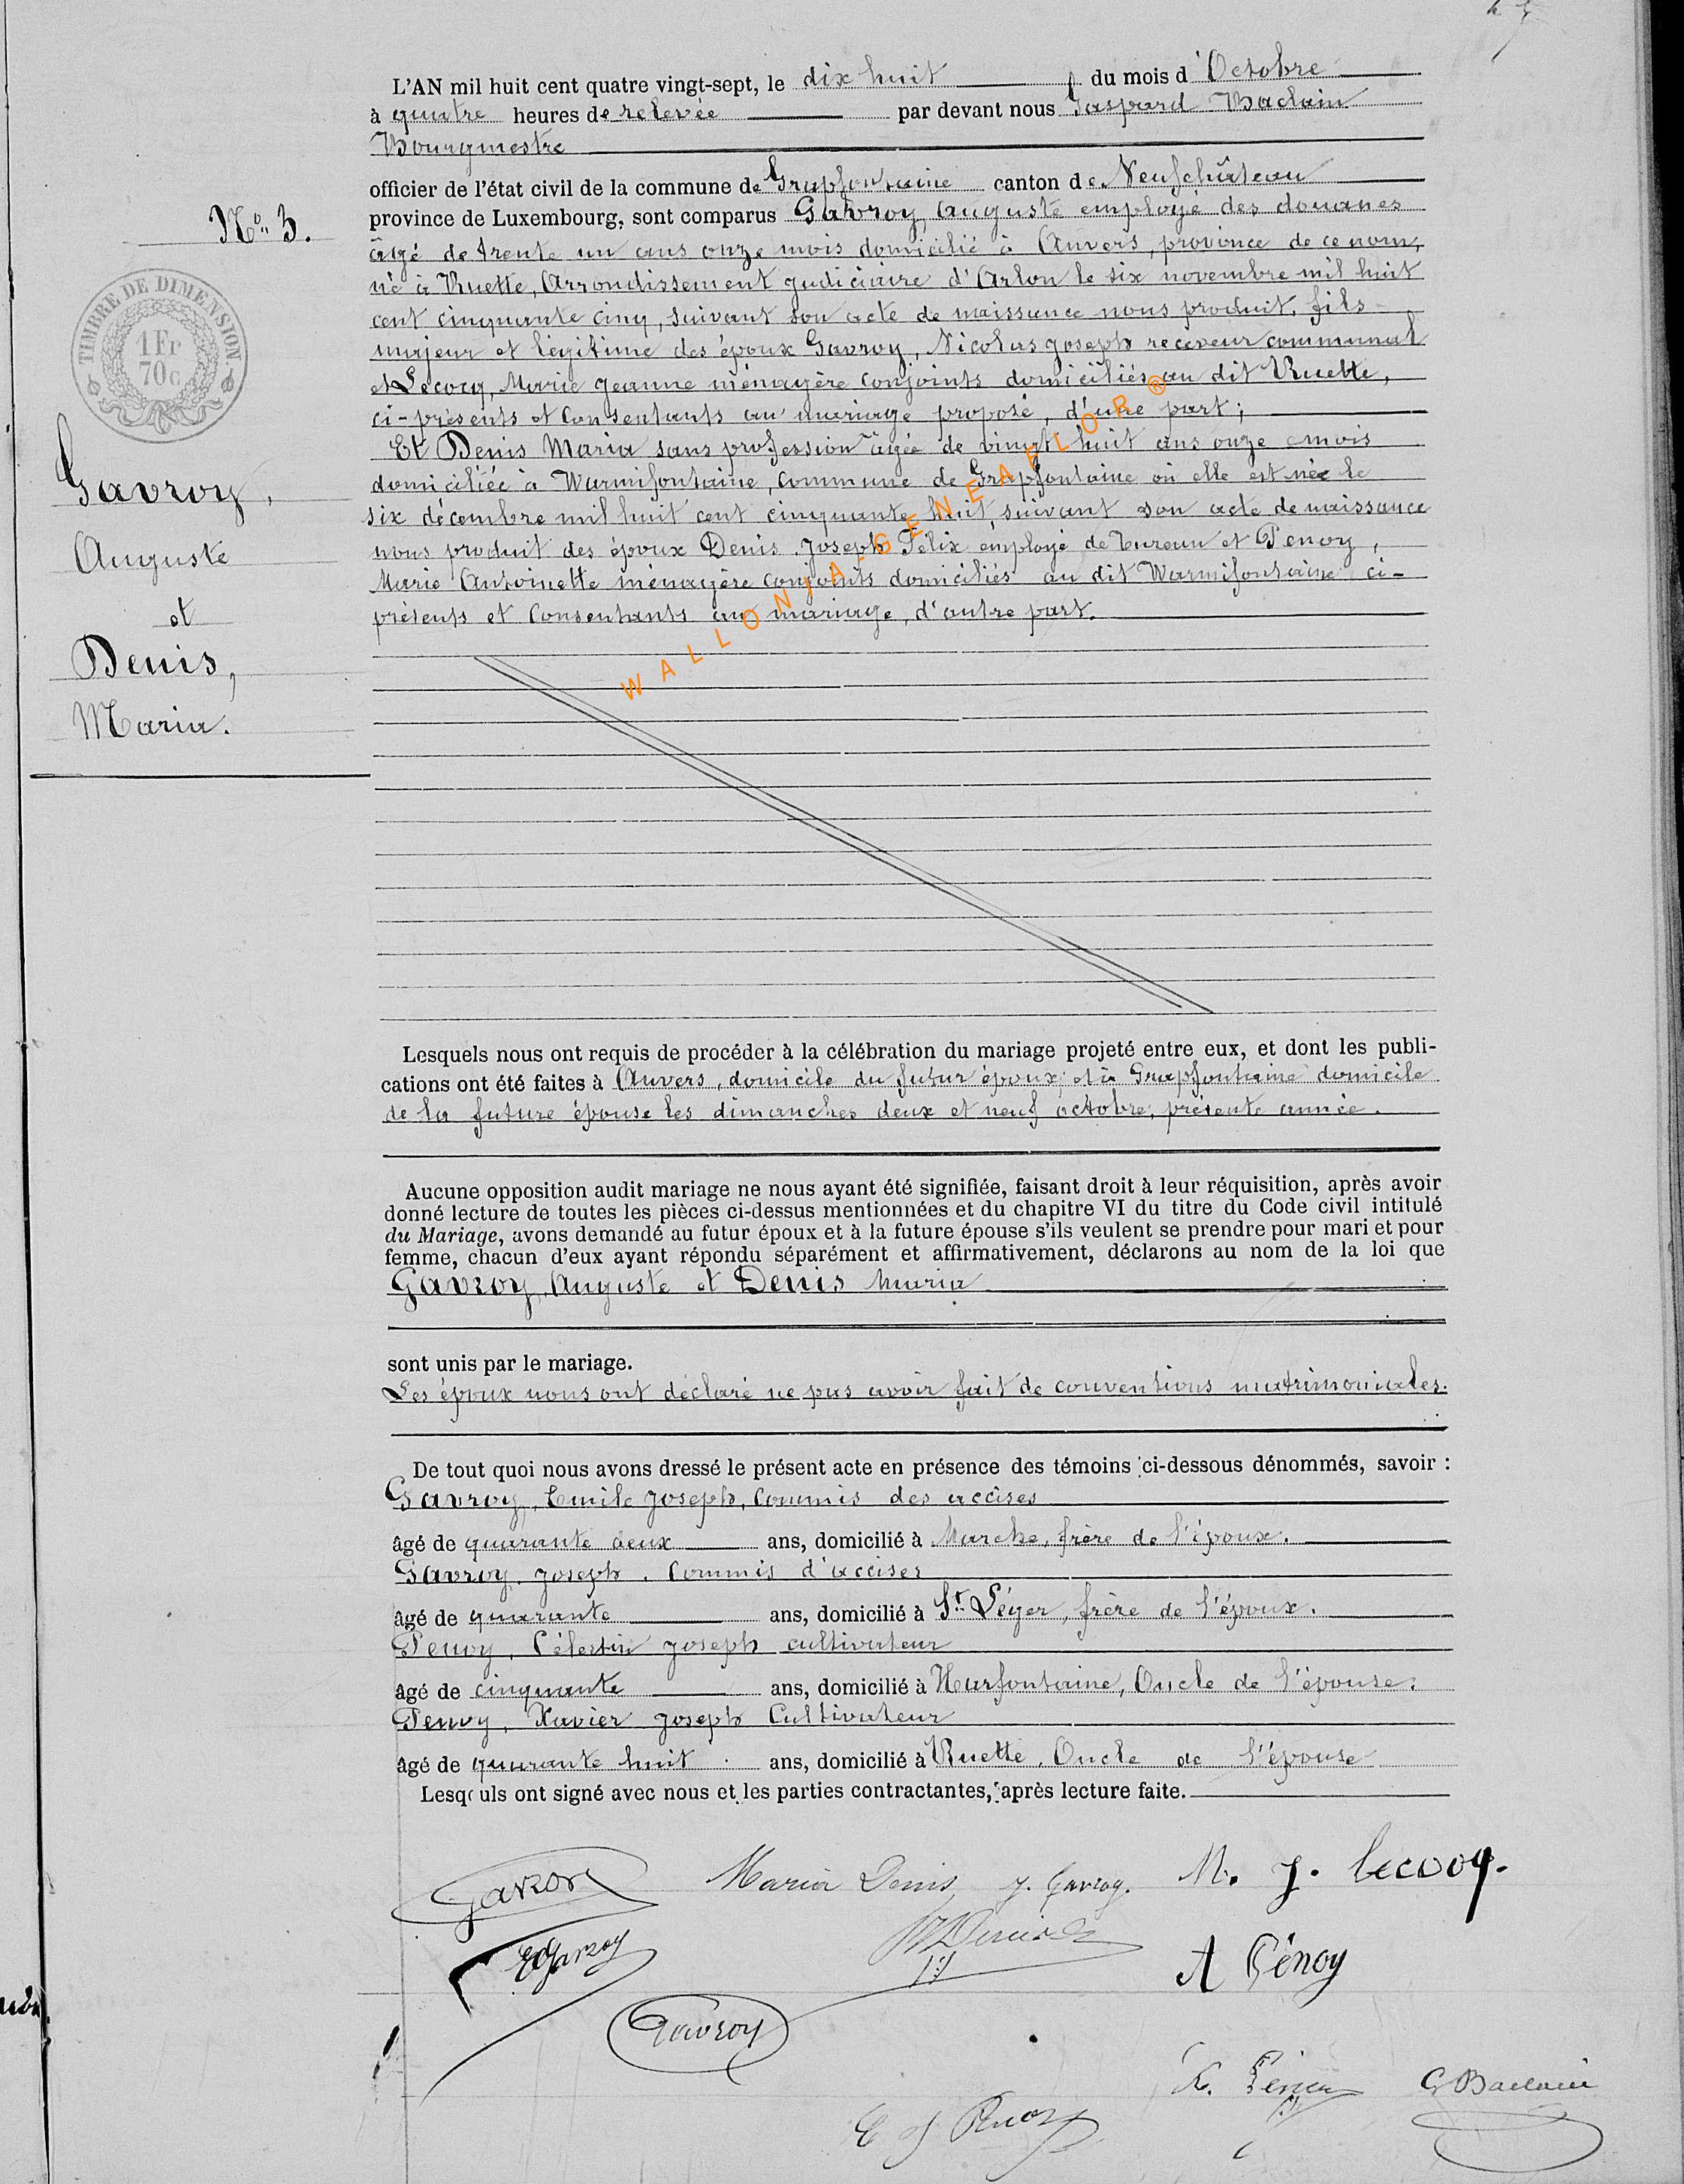 L'AN mil huit cent quatre vingt-sept, le dix huit du mois d'Octobre
à quatre heures de relevée par devant nous Gaspard Baclain
Bourgmestre
officier de l'état civil de la commune de Grapfontaine canton de Neufchâteau
province de Luxembourg, sont comparus Gavroy, Auguste employé des douanes
âgé de trente un ans onze mois domicilié à Anvers, province de ce nom,
né à Ruette, Arrondissement judiciaire d'Arlon le six novembre mil huit
cent cinquante cinq, suivant son acte de naissance nous produit, fils
majeur et légitime des époux Gavroy, Nicolas Joseph receveur communal
et Lecocq, Marie Jeanne ménagère conjoints domiciliés au dit Ruette,
ci-présents et consentants au mariage proposé, d'une part;
Et Denis Maria sans profession âgée de vingt huit ans onze mois
domiciliée à Warmifontaine, commune de Grapfontaine où elle est née le
six décembre mil huit cent cinquante huit, suivant son acte de naissance
nous produit des époux Denis Joseph Félix employé de bureau et Penoy,
Marie Antoinette ménagère conjoints domiciliés au dit Warmifontaine ci-
présents et consentants au mariage, d'autre part.
WALLONIA-GENEAFLOR®
No. 3.
TIMBRE DE DIMENSION
1 Fr
70c
Gavroy,
Auguste
et
Denis,
Maria.
Lesquels nous ont requis de procéder à la célébration du mariage projeté entre eux, et dont les publi-
cations ont été faites à Anvers, domicile du futur époux, et à Grapfontaine domicile
de la future épouse les dimanches deux et neuf octobre, présente année.
Aucune opposition audit mariage ne nous ayant été signifiée, faisant droit à leur réquisition, après avoir
donné lecture de toutes les pièces ci-dessus mentionnées et du chapitre VI du titre du Code civil intitulé
du Mariage, avons demandé au futur époux et à la future épouse s'ils veulent se prendre pour mari et pour
femme, chacun d'eux ayant répondu séparément et affirmativement, déclarons au nom de la loi que
Gavroy, Auguste et Denis Maria
sont unis par le mariage.
Les époux nous ont déclaré ne pas avoir fait de conventions matrimoniales.
De tout quoi nous avons dressé le présent acte en présence des témoins ci-dessous dénommés, savoir :
Gavroy, Emile Joseph, Commis des accises
âgé de quarante deux ans, domicilié à Marche, frère de l'époux.
Gavroy, Joseph, Commis d'accises
âgé de quarante ans, domicilié à St. Léger, frère de l'époux.
Penoy, Célestin Joseph cultivateur
âgé de cinquante ans, domicilié à Harfontaine, Oncle de l'épouse.
Penoy, Xavier Joseph Cultivateur
âgé de quarante huit ans, domicilié à Ruette, Oncle de l'épouse
Lesquels ont signé avec nous et les parties contractantes, après lecture faite.
Gavroy Maria Denis J. Gavroy. M. J. Lecocq.
E Gavroy A Pénoy
Gavroy
G Baclain